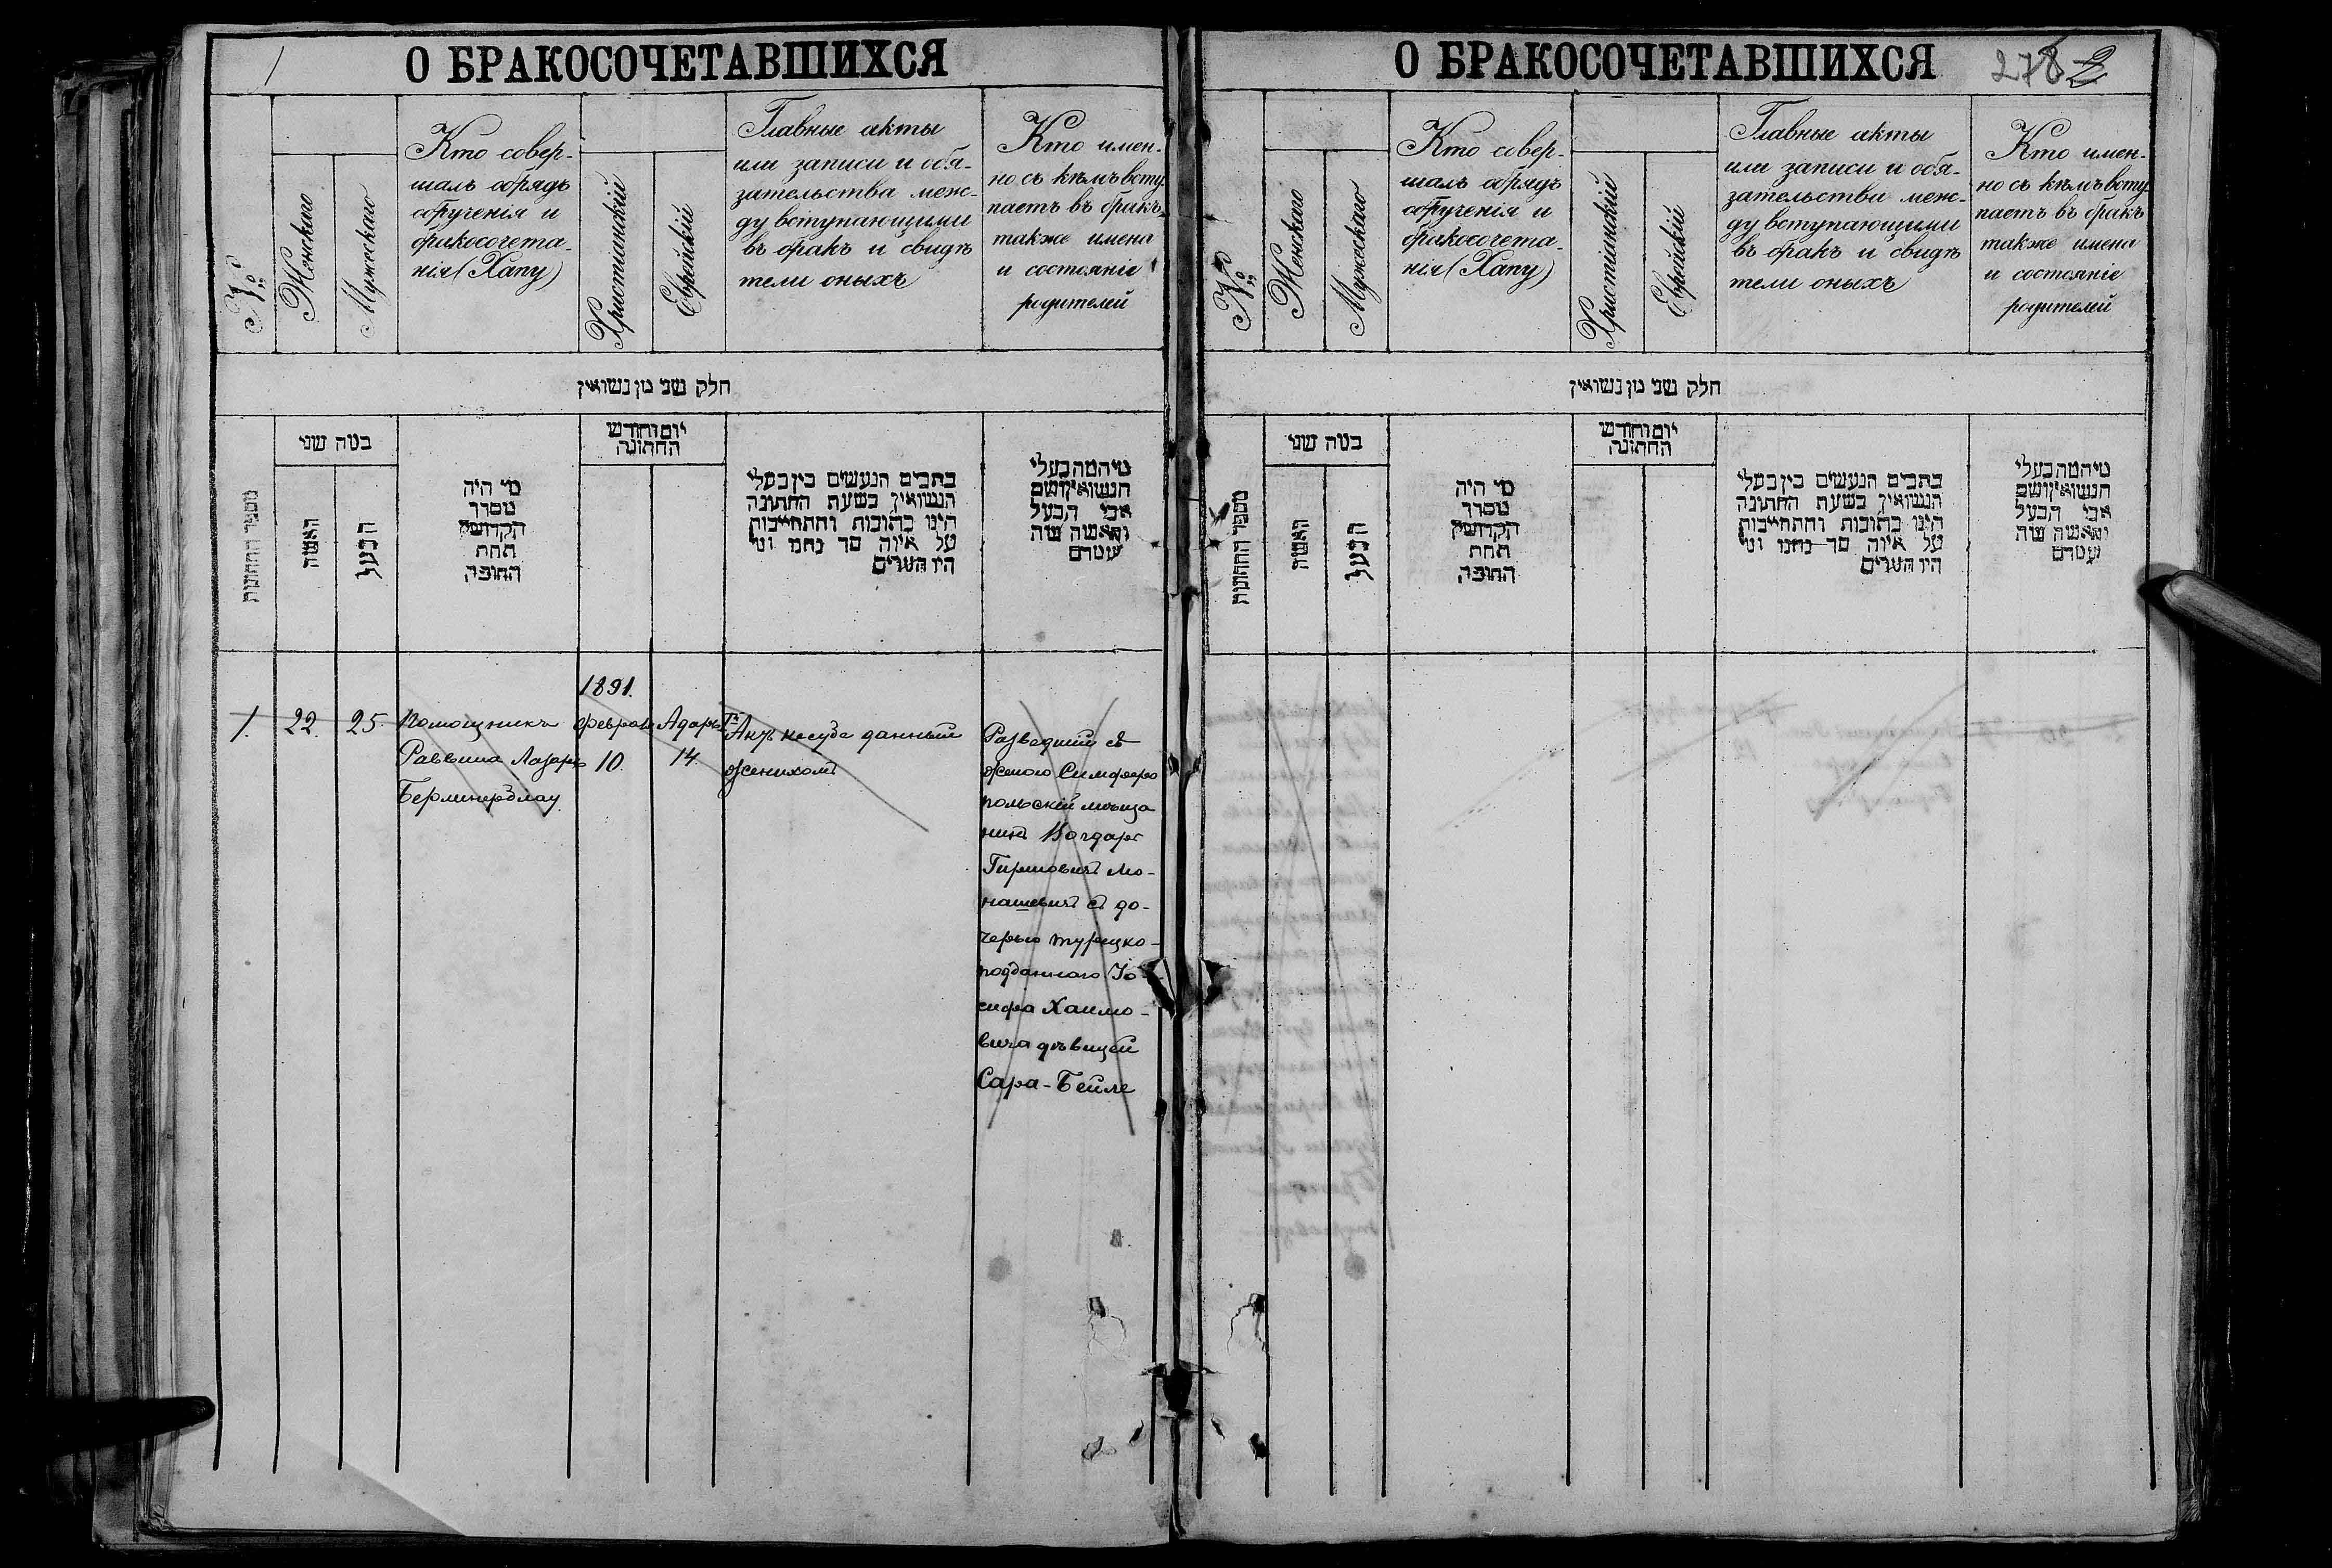 1
О БРАКОСОЧЕТАВШИХСЯ
№
Женскаго
Мужескаго
Кто совер-
шалъ обрядъ
обрученія и
бракосочета-
нія (Хапу)
Христіанскій
Еврейскій
Главные акты
или записи и обя-
зательства меж-
ду вступающими
въ бракъ и свидѣ
тели оныхъ
Кто имен-
но съ кѣмъ всту-
паетъ въ бракъ
также имена
и состояніе
родителей
חלק שני מן נשואין
מספר החתונות
במה שני
האשה
הבעל
מי היה
מסדר
הקדושין
תחת
החופה
יום וחודש
החתונה
כתבים הנעשים בין בעלי
הנשואין בשעת החתונה
היינו כתובות והתחייבות
על איזה סך נתנו ומי
היו העדים
מי המה בעלי
הנשואין ושם
אבי הבעל
והאשה
1. 22. 25.
Помощникъ
Раввина Лазарь
Берлинерблау
1891.
Февраля
10.
Адаръ
14
Актъ
данный
женихомъ
Разведшій съ
женою Симферо
польскій мѣща
нинъ
Гиршовичъ Мо-
нашевичъ съ до-
черью турецко-
подданного Іо-
сифа Хаимо-
вича дѣвицей
Сара-Бейле
О БРАКОСОЧЕТАВШИХСЯ
278 2
№
Женскаго
Мужескаго
Кто совер-
шалъ обрядъ
обрученія и
бракосочета-
нія (Хапу)
Христіанскій
Еврейскій
Главные акты
или записи и обя-
зательства меж-
ду вступающими
въ бракъ и свидѣ
тели оныхъ
Кто имен-
но съ кѣмъ всту-
паетъ въ бракъ
также имена
и состояніе
родителей
חלק שני מן נשואין
מספר החתונות
במה שני
האשה
הבעל
מי היה
מסדר
הקדושין
תחת
החופה
יום וחודש
החתונה
כתבים הנעשים בין בעלי
הנשואין בשעת החתונה
היינו כתובות והתחייבות
על איזה סך נתנו ומי
היו העדים
מי המה בעלי
הנשואין ושם
אבי הבעל
והאשה